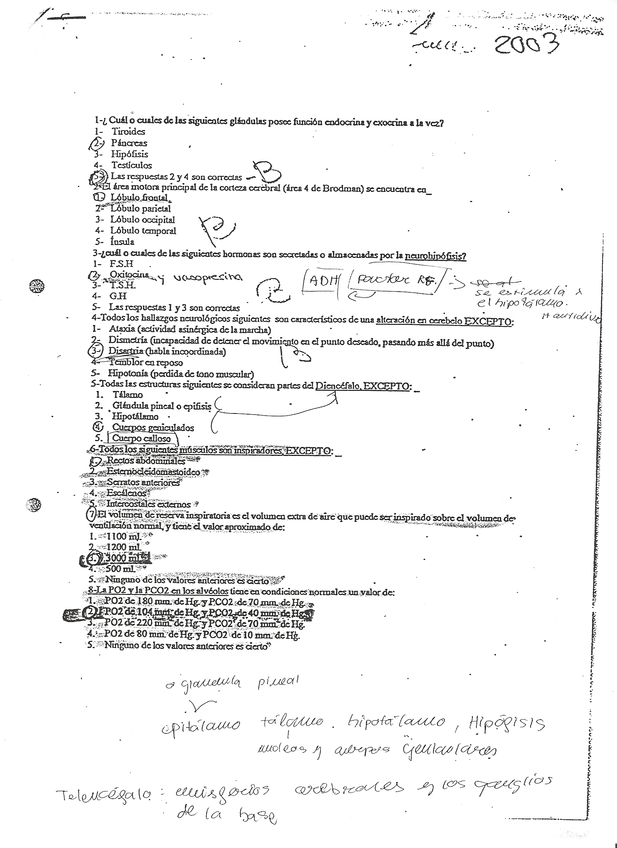 2003
1-¿ Cuál o cuales de las siguientes glándulas posee función endocrina y exocrina a la vez?
1- Tiroides
2- Páncreas
3- Hipófisis
4- Testículos
5- Las respuestas 2 y 4 son correctas
2-El área motora principal de la corteza cerebral (área 4 de Brodman) se encuentra en_
1- Lóbulo frontal
2- Lóbulo parietal
3- Lóbulo occipital
4- Lóbulo temporal
5- Ínsula
3-¿cuál o cuales de las siguientes hormonas son secretadas o almacenadas por la neurohipófisis?
1- F.S.H
2- Oxitocina y vasopresina
3- T.S.H.
4- G.H
5- Las respuestas 1 y 3 son correctas
ADH
se estimula x
el hipotálamo.
4-Todos los hallazgos neurológicos siguientes son característicos de una alteración en cerebelo EXCEPTO:
1- Ataxia (actividad asinérgica de la marcha)
2- Dismetría (incapacidad de detener el movimiento en el punto deseado, pasando más allá del punto)
3- Disartria (habla incoordinada)
4- Temblor en reposo
5- Hipotonía (perdida de tono muscular)
5-Todas las estructuras siguientes se consideran partes del Diencéfalo, EXCEPTO: _
1. Tálamo
2. Glándula pineal o epífisis
3. Hipotálamo
4. Cuerpos geniculados
5. Cuerpo calloso
6-Todos los siguientes músculos son inspiradores, EXCEPTO: _
1. Rectos abdominales
2. Esternocleidomastoideo
3. Serratos anteriores
4. Escálenos
5. Intercostales externos
7-El volumen de reserva inspiratoria es el volumen extra de aire que puede ser inspirado sobre el volumen de
ventilación normal, y tiene el valor aproximado de:
1. 1100 ml.
2. 1200 ml.
3. 3000 ml.
4. 500 ml.
5. Ninguno de los valores anteriores es cierto
8-La PO2 y la PCO2 en los alvéolos tiene en condiciones normales un valor de:
1. PO2 de 180 mm. de Hg. y PCO2 de 70 mm. de Hg.
2. PO2 de 104 mm. de Hg. y PCO2 de 40 mm. de Hg.
3. PO2 de 220 mm. de Hg. y PCO2 de 70 mm. de Hg.
4. PO2 de 80 mm. de Hg. y PCO2 de 10 mm. de Hg.
5. Ninguno de los valores anteriores es cierto
glandula pineal
epitálamo tálamo. hipotálamo, Hipófisis
nucleos y cuerpos Geniculares
Telencéfalo: emisferios cerebrales y los ganglios
de la base